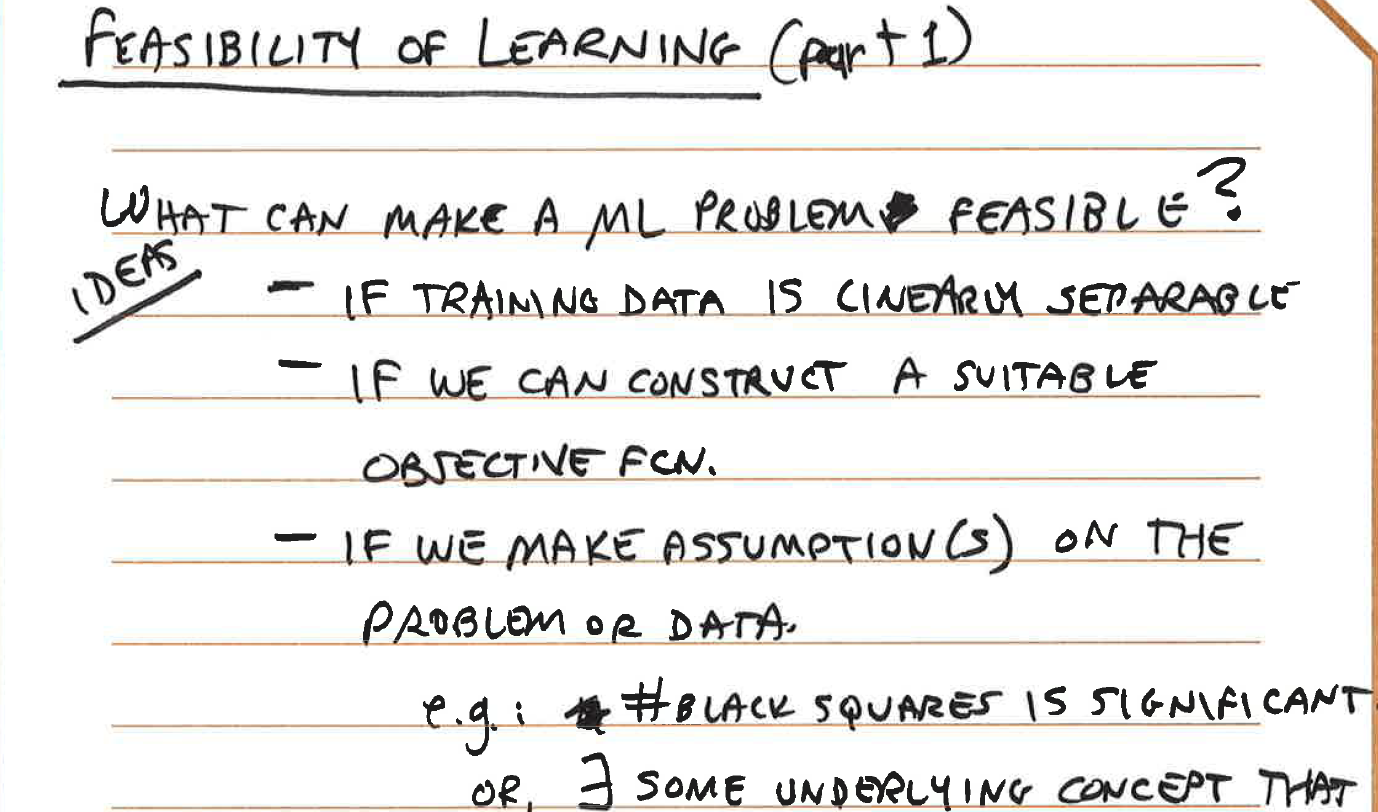 FEASIBILITY OF LEARNING (part 1)
WHAT CAN MAKE A ML PROBLEM FEASIBLE?
IDEAS
- IF TRAINING DATA IS LINEARLY SEPARABLE
- IF WE CAN CONSTRUCT A SUITABLE
OBJECTIVE FCN.
- IF WE MAKE ASSUMPTION(S) ON THE
PROBLEM OR DATA.
e.g.: #BLACK SQUARES IS SIGNIFICANT
OR, ∃ SOME UNDERLYING CONCEPT THAT